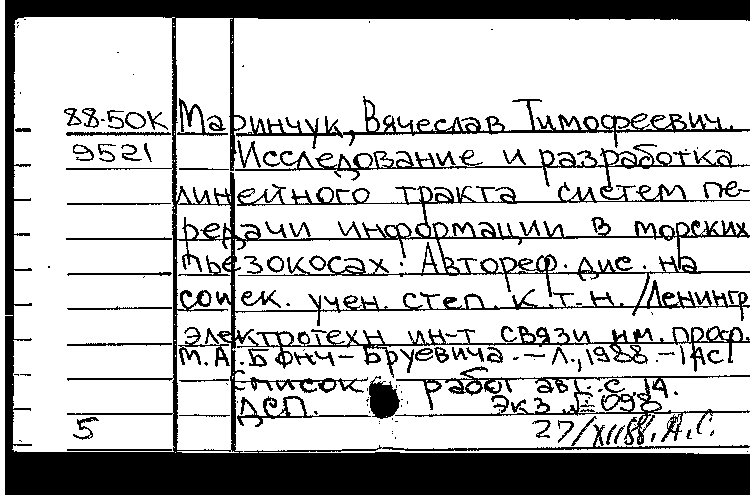 88-50К Маринчук, Вячеслав Тимофеевич.
9521 Исследование и разработка
линейного тракта систем пе-
редачи информации в морских
пьезокосах: Автореф. дис. на
соиск. учен. степ. к.т.н. /Ленингр.
электротехн ин-т связи им. проф.
М.А. Бонч-Бруевича. - Л., 1988. - 14 с.
Список работ авт.: с 14.
ДСП. Экз. 098
5 27/XII88. А.С.